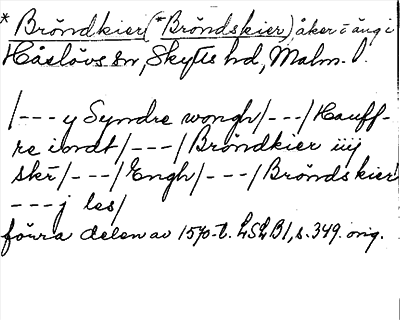 * Bröndkier (*Bröndskier) åker o äng i
Håslövs sn, Skytts hd, Malm. l.
/--- y Syndre wongh/---/Hauff-
re iordt/---/Bröndkier iiij
skr̄/---/Engh/---/Bröndskier
---j les/
förra delen av 1570-t. LSLB1, s. 349. orig.